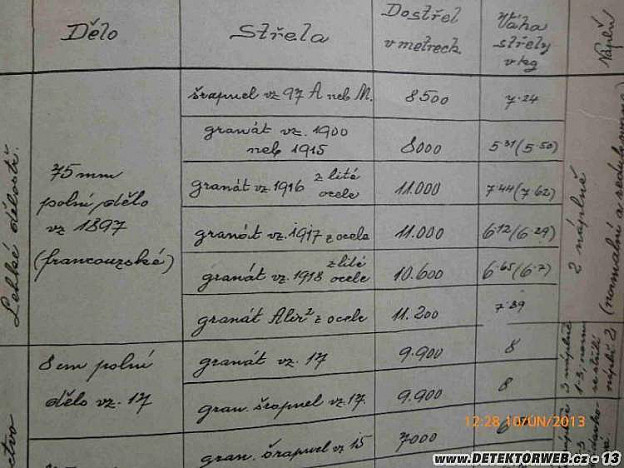 Dělo
Střela
Dostřel
v metrech
Váha
střely
v kg
Náplň
Lehké dělostř.
75 mm
polní dělo
vz 1897
(francouzské)
šrapnel vz 97 A neb M.
8500
7·24
granát vz. 1900
neb 1915
8000
5·31 (5·50)
granát vz 1916 z lité
ocele
11.000
7·44 (7·62)
granát vz. 1917 z ocele
11.000
6·12 (6·29)
granát vz. 1918 z lité
ocele
10.600
6·65 (6·7)
granát z ocele
11.200
7·39
2 náplně
(normální a redukovaná)
8 cm polní
dělo vz. 17
granát vz. 17
9.900
8
gran. šrapnel vz. 17
9.900
8
gran. šrapnel vz 15
7000
3 náplně
12:28 10/ÚN/2013
www.DETEKTORWEB.cz - 13